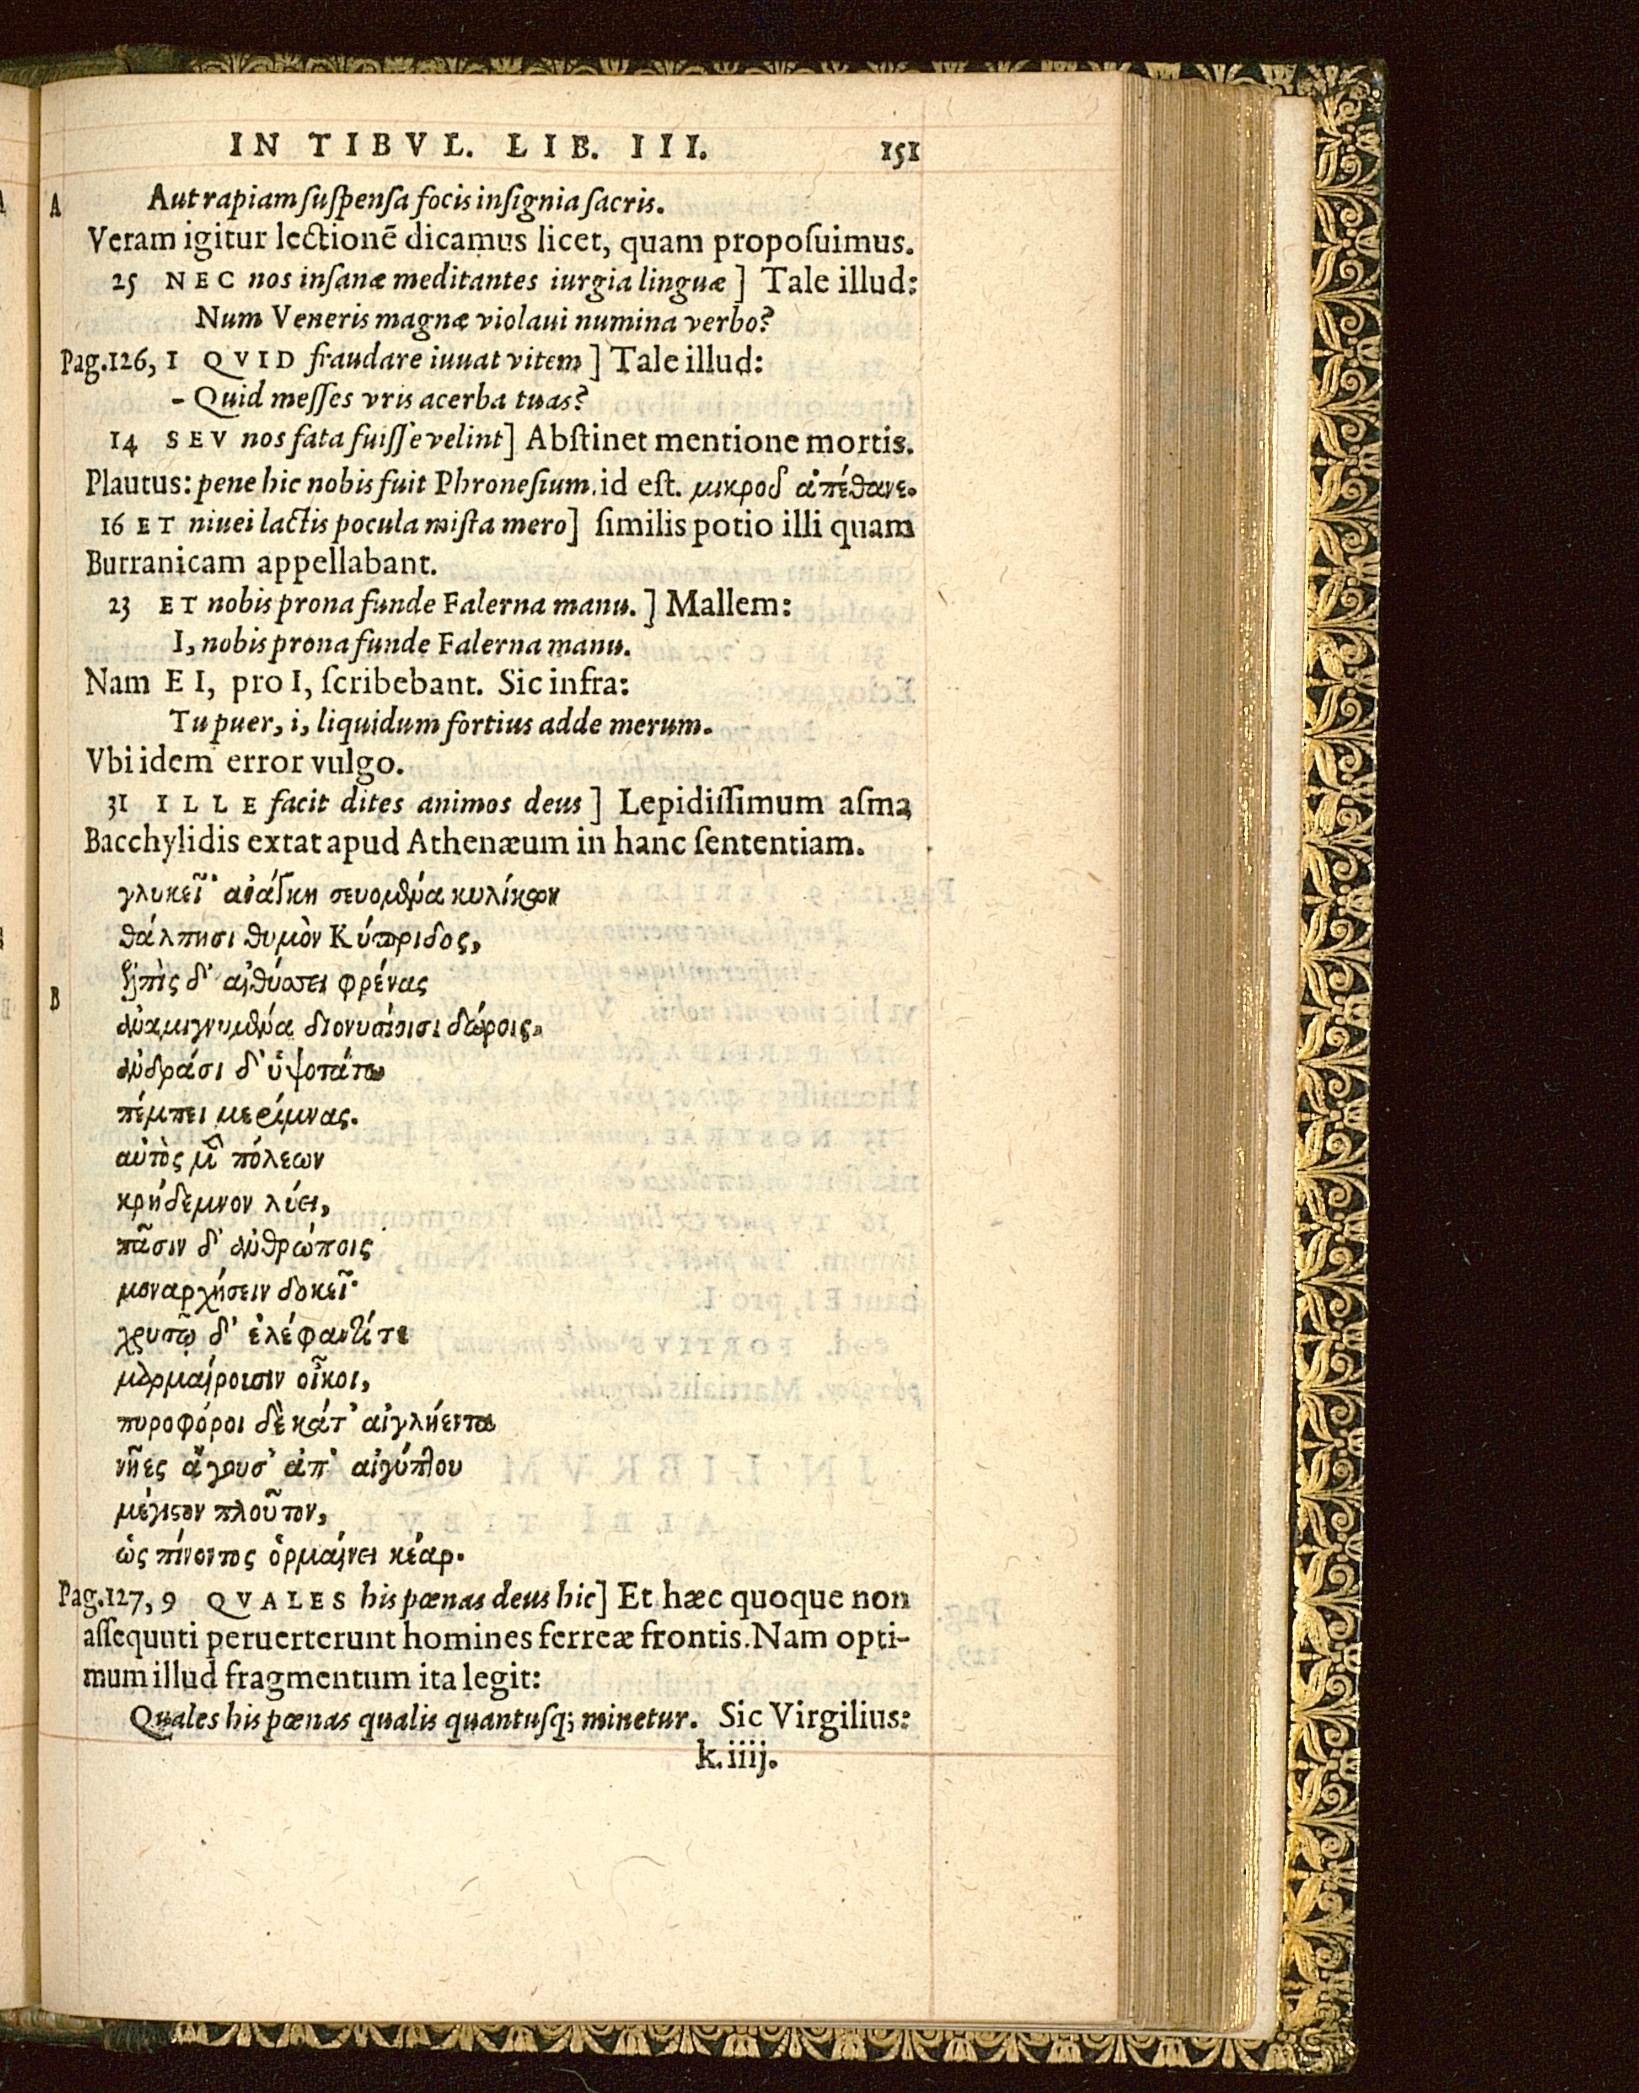 IN TIBVL. LIB. III. 151
A Aut rapiam suspensa focis insignia sacris.
Veram igitur lectionē dicamus licet, quam proposuimus.
25 NEC nos insanæ meditantes iurgia linguæ] Tale illud:
Num Veneris magnæ violaui numina verbo?
Pag.126, 1 QVID fraudare iuuat vitem] Tale illud:
- Quid messes vris acerba tuas?
14 SEV nos fata fuisse velint] Abstinet mentione mortis.
Plautus: pene hic nobis fuit Phronesium. id est. μικροῦ ἀπέθανε.
16 ET niuei lactis pocula mista mero] similis potio illi quam
Burranicam appellabant.
23 ET nobis prona funde Falerna manu.] Mallem:
I, nobis prona funde Falerna manu.
Nam EI, pro I, scribebant. Sic infra:
Tu puer, i, liquidum fortius adde merum.
Vbi idem error vulgo.
31 ILLE facit dites animos deus] Lepidissimum asma
Bacchylidis extat apud Athenæum in hanc sententiam.
γλυκεῖ' ἀνάγκη σευομένα κυλίκων
θάλπησι θυμὸν Κύπριδος,
ἐλπὶς δ' αἰθύσσει φρένας
B ἀναμιγνυμένα διονυσίοισι δώροις.
ἀνδράσι δ' ὑψοτάτω
πέμπει μερίμνας.
αὐτὸς μὲν πόλεων
κρήδεμνον λύει,
πᾶσιν δ' ἀνθρώποις
μοναρχήσειν δοκεῖ·
χρυσῷ δ' ἐλέφαντί τε
μαρμαίροισιν οἶκοι,
πυροφόροι δὲ κάτ' αἰγλήεντα
νῆες ἄγουσ' ἀπ' αἰγύπτου
μέγιστον πλοῦτον,
ὡς πίνοντος ὁρμαίνει κέαρ.
Pag.127, 9 QVALES his pœnas deus hic] Et hæc quoque non
assequuti peruerterunt homines ferreæ frontis. Nam opti-
mum illud fragmentum ita legit:
Quales his pœnas qualis quantusq; minetur. Sic Virgilius:
k.iiij.